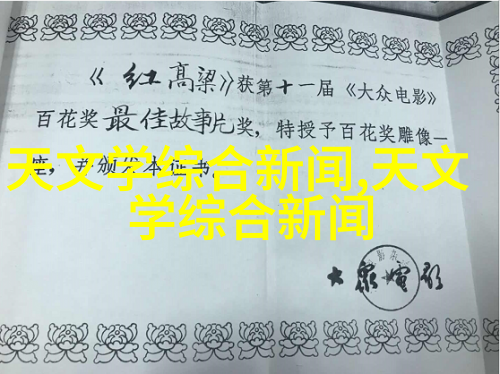 《红高粱》获第十一届《大众电影》
百花奖最佳故事片奖，特授予百花奖雕像一
座，并颁发本证书。
天文学综合新闻,天文
学综合新闻
大眾電影